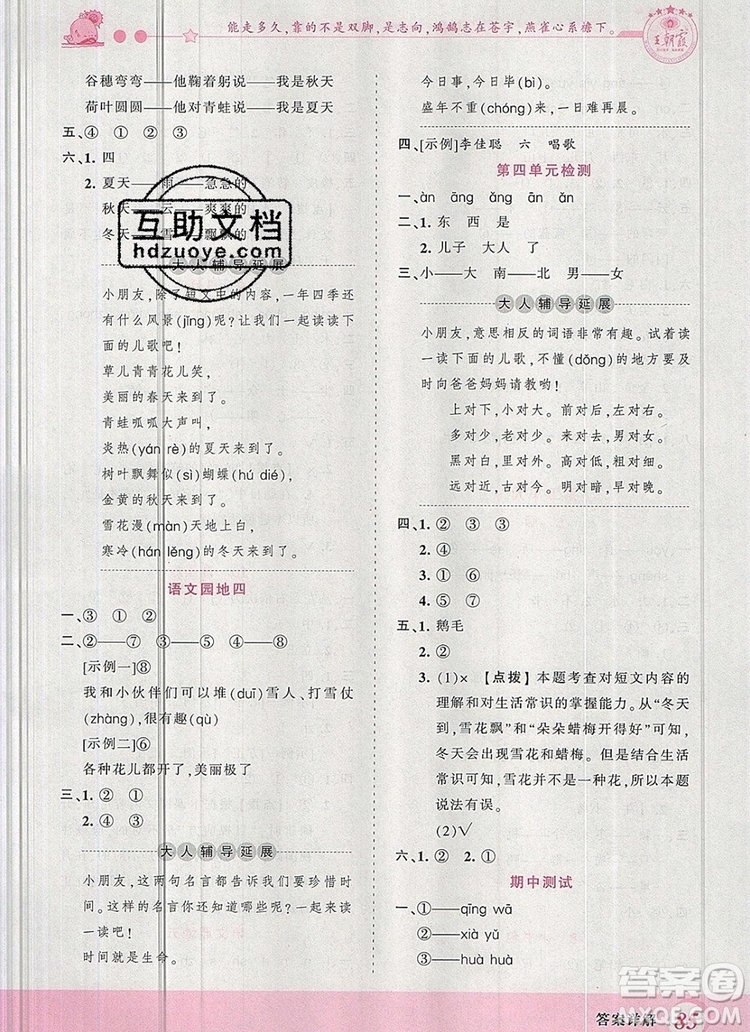 能走多久,靠的不是双脚,是志向,鸿鹄志在苍宇,燕雀心系檐下。
王朝霞
谷穗弯弯——他鞠着躬说——我是秋天
荷叶圆圆——他对青蛙说——我是夏天
五、④ ① ② ③
六、1. 四
2. 夏天——雨——急急的
秋天——云——爽爽的
冬天——雪——飘飘的
互助文档
hdzuoye.com
大人辅导延展
小朋友,除了短文中的内容,一年四季还
有什么风景(jǐng)呢?让我们一起读读下
面的儿歌吧!
草儿青青花儿笑,
美丽的春天来到了。
青蛙呱呱大声叫,
炎热(yán rè)的夏天来到了。
树叶飘舞似(sì)蝴蝶(hú dié),
金黄的秋天来到了。
雪花漫(màn)天地上白,
寒冷(hán lěng)的冬天来到了。
语文园地四
一、③ ① ②
二、②——③——④——⑤——⑧
[示例一]⑧
我和小伙伴们可以堆(duī)雪人、打雪仗
(zhàng),很有趣(qù)
[示例二]⑥
各种花儿都开了,美丽极了
三、1. ② ①
2. ④ ③
大人辅导延展
小朋友,这两句名言都告诉我们要珍惜时
间。下面还有这样的名言,快来一起读
一读吧!
时间就是生命。
今日复今日,今日何其少!今日又不为,
此事何时了。
盛年不重(chóng)来,一日难再晨。
四、[示例]李佳聪 六 唱歌
第四单元检测
一、àn āng ǎng ān ǎn
二、1. 东 西 是
2. 儿子 大人 了
三、小——大 南——北 男——女
大人辅导延展
小朋友,意思相反的词语非常有趣。试着读
一读下面的儿歌,不懂(dǒng)的地方要及
时向爸爸妈妈请教哟!
上对下,小对大。前对后,后对前。
多对少,老对少。来对去,正对反。
黑对白,白对黑。明对暗,阴对晴。
远对近,古对今。明对暗,早对晚。
四、1. ② ③ ③
2. ② ④
3. ① ⑥
4. ⑤ ⑦
五、1. 鹅毛
2. ②
3. (1)× 【点拨】本题考查对短文内容的
理解和对生活常识的掌握能力。从“冬天
到,雪花飘”和“朵朵蜡梅开得好”可知,
冬天会出现雪花和蜡梅。但结合生活
常识可知,雪花并不是一种花,所以本题
说法有误。
(2)√
六、1. ② 2. ①
期中测试
一、①——qīng wā
②——xià yǔ
③——huà huà
答案详解 85
答案圈
MXQE.COM